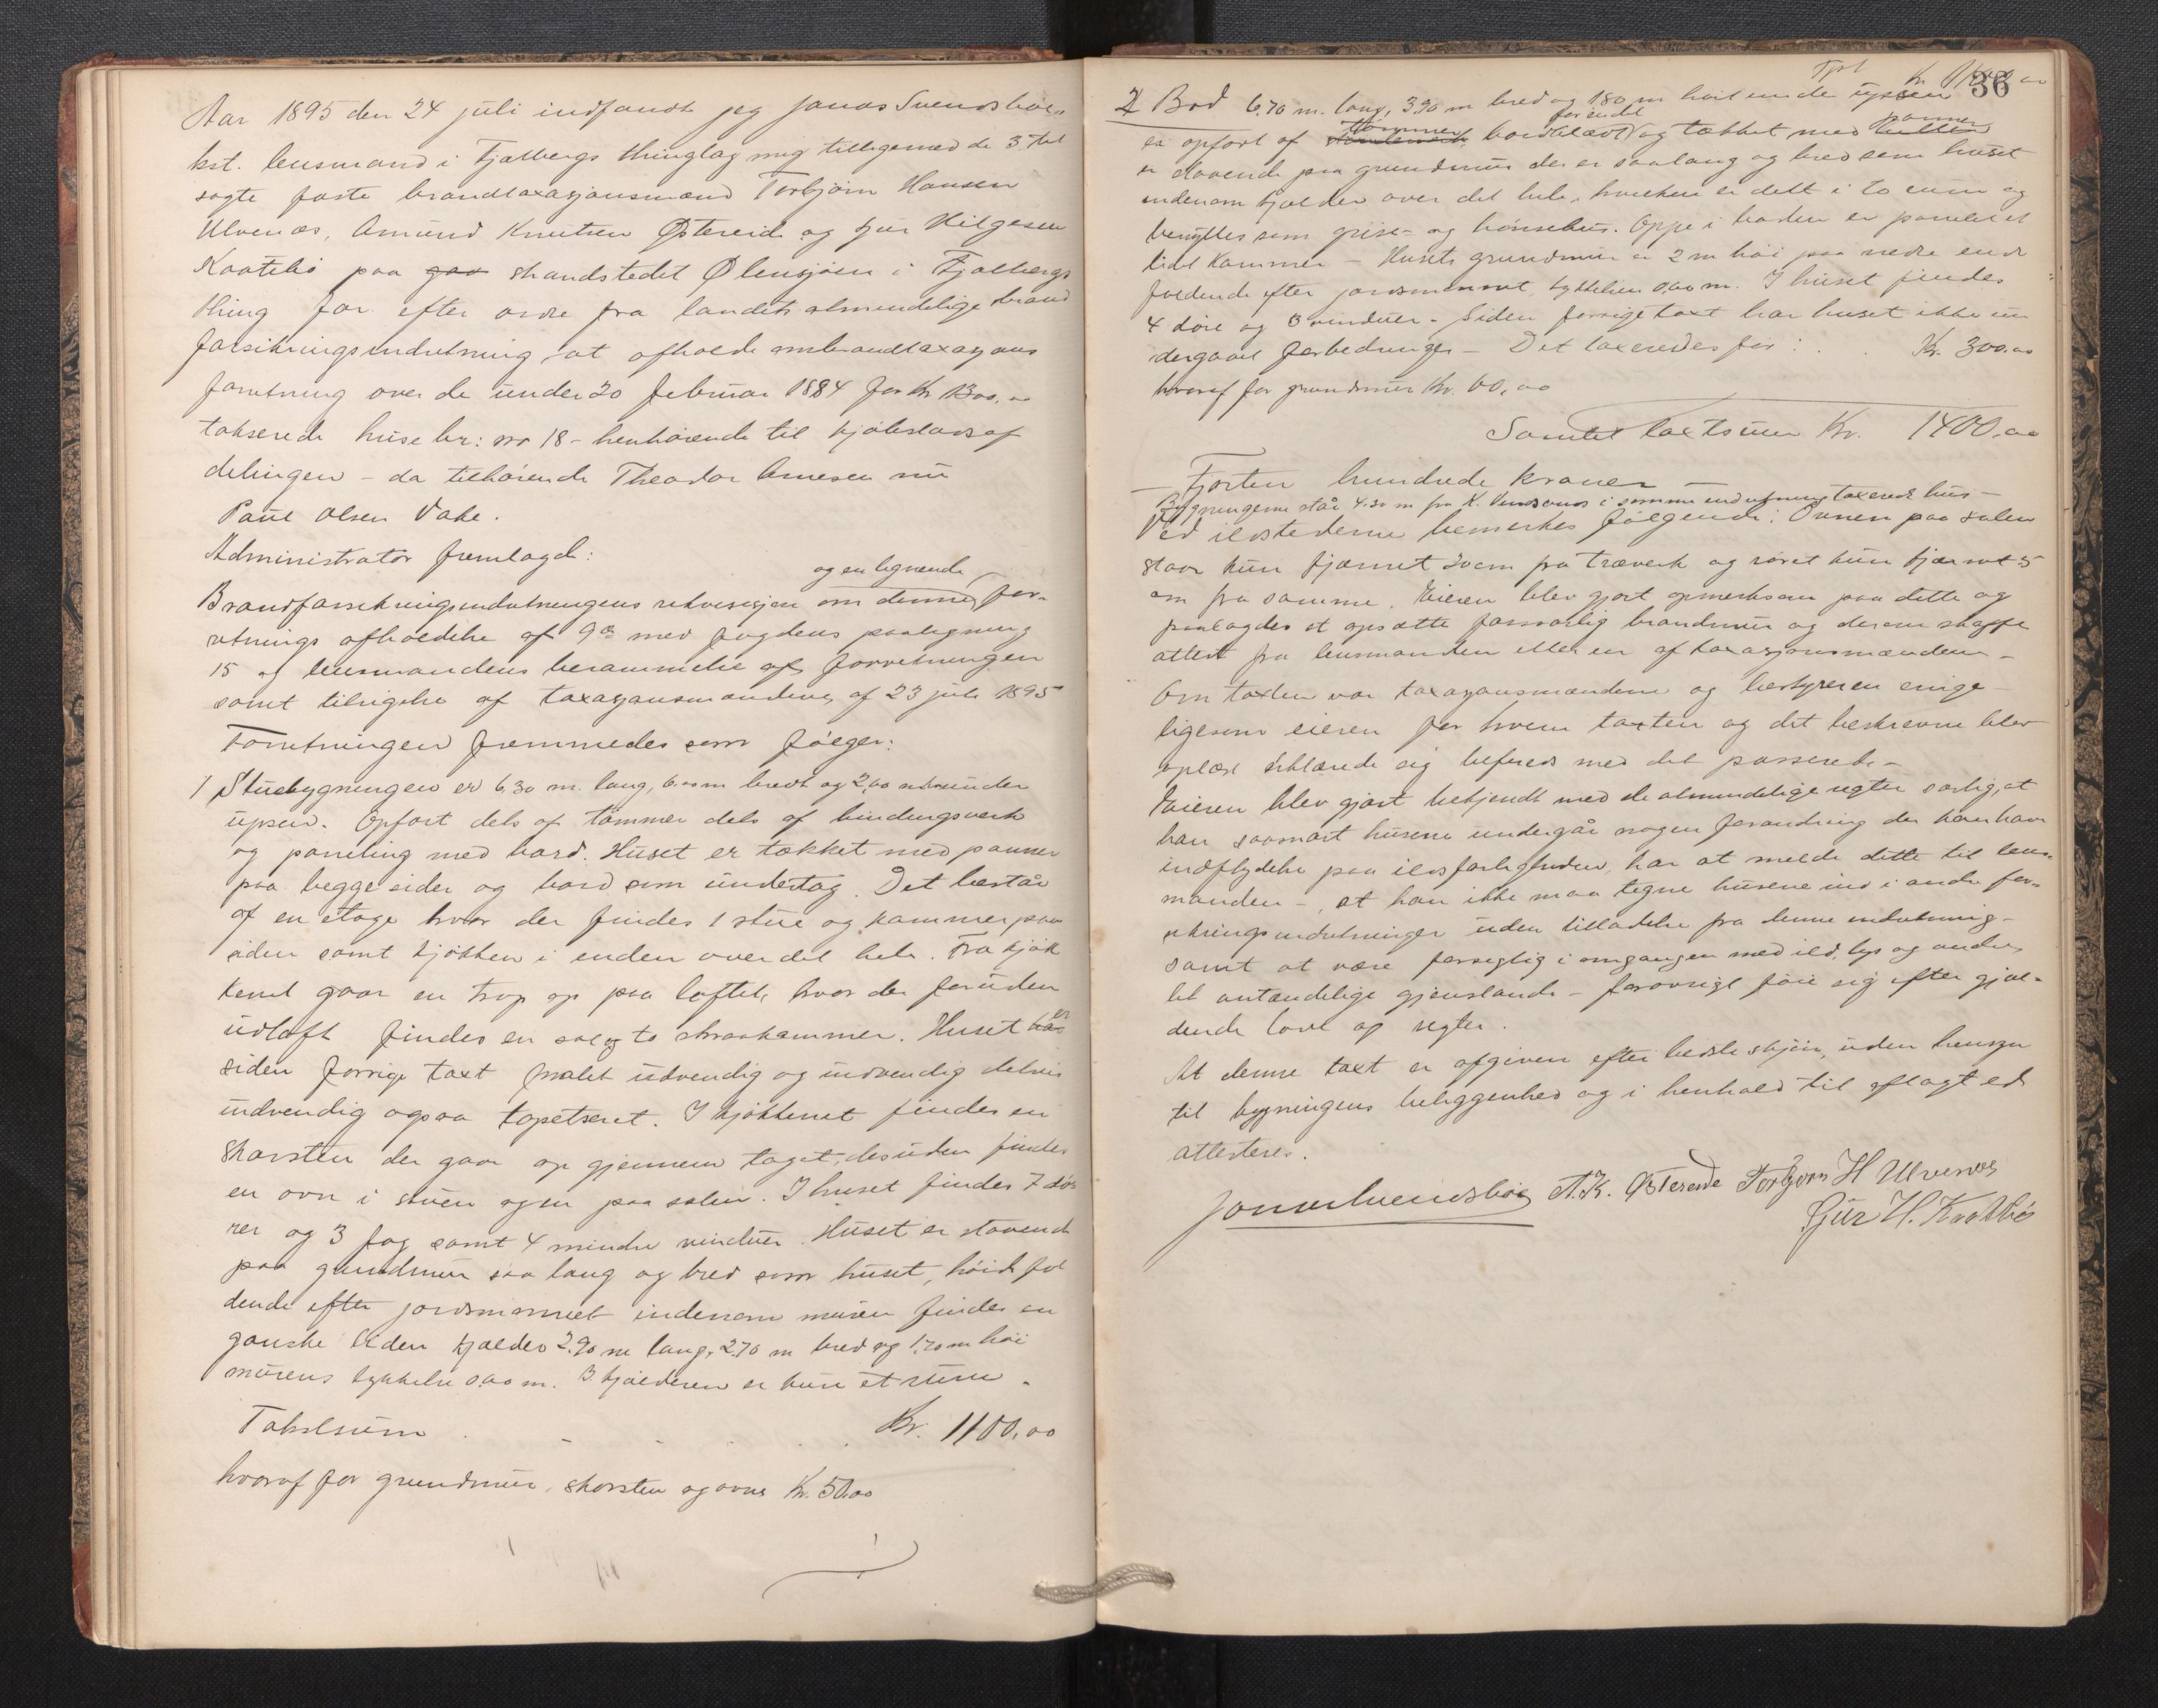 Aar 1895 den 24 juli indfandt jeg Jonas Svendsbøe,
kst. lensmand i Fjælbergs thinglag mig tilligemed de 3 tid
sagte faste brandtaxasjonsmænd Torbjørn Hansen
Ulvenæs, Amund Knutsen Østereide og Sjur Hilgesen
Kaatebø paa gaa strandstedet Ølensjøen i Fjælbergs
thing for efter ordre fra landets almindelige brand
forsikringsindretning at afholde ombrandtaxasjons
forretning over de under 20 februar 1884 for Kr 1300,00
takserede huse br: no 18 - henhørende til kjøbstadsaf
delingen - da tilhørende Theodor Arnesen nu
Paul Olsen Vake.
Administrator fremlagde:
og en lignende
Brandforsikringsindretningens rekvisisjon om denne for-
retnings afholdelse af 9de med fogdens paategning
15 og lensmandens berammelse af forretningen
samt tilsigelse af taxasjonsmændene af 23 juli 1895
Forretningen fremmedes som følger:
1 Stuebygningen er 6,30 m. lang, 6,00 m bredt og 2,60 m under
upsen. Opført dels af tømmer dels af bindingsverk
og paneling med bord. Huset er tækket med panner
paa begge sider og bord som undertag. Det består
af en etage hvor der findes 1 stue og kammer paa
siden samt kjøkken i enden over det hele. Fra kjøk
kenet gaar en trap op paa loftet, hvor der foruden
udloft findes en sal og to skraakammer. Huset har er
siden forrige taxt malet udvendig og indvendig delvis
indvendig ogsaa tapetseret. I kjøkkenet findes en
skorsten der gaar op gjennem taget, desuden findes
en ovn i stuen og en paa salen. I huset findes 7 dør
rer og 3 fag samt 4 mindre vinduer. Huset er staaende
paa grundmur saa lang og bred som huset, høide fal
dende efter jordsmonnet indenom muren findes en
ganske liden kjælder 2,90 m lang, 2,70 m bred og 1,70 m høi
murens tykkelse 0,60 m. I kjælderen er kun et rum.
Takstsum Kr. 1100,00
hvoraf for grundmur, skorsten og ovne Kr. 50,00
36
Tpt Kr. 1100,00
2 Bod 6,70 m. lang, 3,90 m bred og 1,80 m høi under upsen
tømmer forendt panner
er opført af bordklædt og tækket med
er staaende paa grundmur der er saa lang og bred som huset
indenom kjælder over det hele, hvilken er delt i to rum og
benyttes som grise- og hønsehus. Oppe i boden er panelet et
lidet kammer - Husets grundmur er 2 m høi paa nedre ende
faldende efter jordsmonnet, tykkelsen 0,60 m. I huset findes
4 døre og 3 vinduer. Siden forrige taxt har huset ikke un
dergaaet forbedringer - Det taxeredes for: Kr. 300,00
hvoraf for grundmur Kr. 60,00
Samlet taxtsum Kr. 1400,00
- Fjorten hundrede kroner -
Bygningerne står 4,30 m fra K. i samme indretning taxerede hus -
Ved ildstederne bemerkes følgende: Ovnen paa salen
staar kun fjærnet 20 cm fra træverk og røret kun fjærnet 5
cm fra samme. Eieren blev gjort opmerksom paa dette og
paalagdes at opsætte forsvarlig brandmur og derom skaffe
attest fra lensmanden eller en af taxasjonsmændene -
Om taxten var taxasjonsmændene og bestyreren enige -
ligesom eieren for hvem taxten og det beskrevne blev
oplæst erklærede sig tilfreds med det passerede -
Eieren blev gjort bekjendt med de almindelige regler særlig, at
han saasnart husene undergår nogen forandring der kan have
indflydelse paa ildsfarligheden, har at melde dette til lens-
manden -, at han ikke maa tegne husene ind i andre for-
sikringsindretninger uden tilladelse fra denne indretning -
samt at være forsigtig i omgangen med ild, lys og andre
let antændelige gjenstande - forøvrigt føie sig efter gjæl-
dende love og regler.
At denne taxt er afgiven efter bedste skjøn, uden hensyn
til bygningens beliggenhed og i henhold til aflagt ed
attesteres.
Jonas Svendsbøe A.K. Østereide Torbjørn H Ulvenæs
Sjur H. Kaatebø